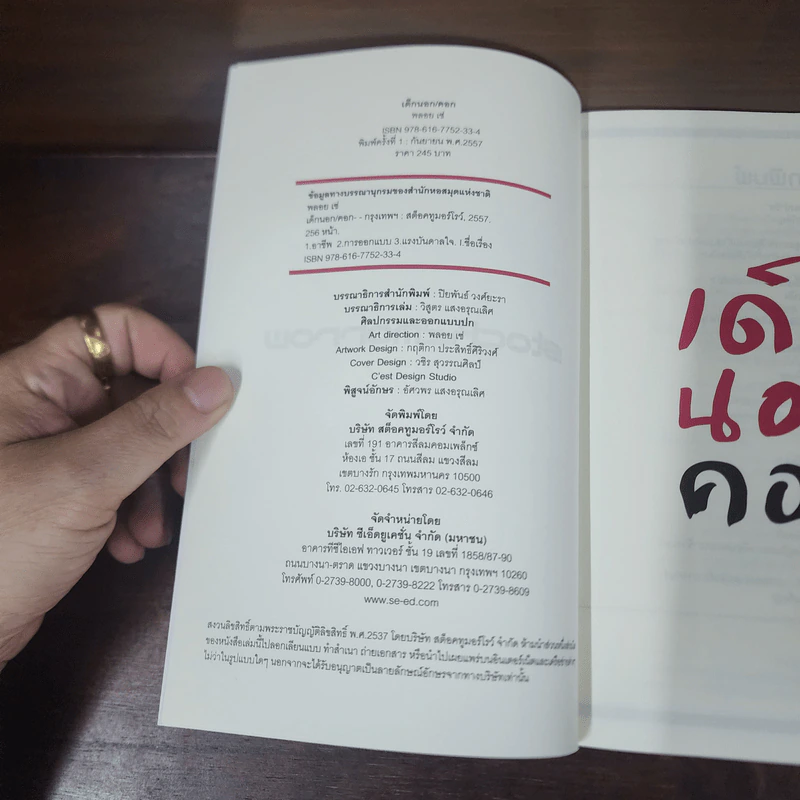 เด็กนอก/คอก
พลอย เช่
ISBN 978-616-7752-33-4
พิมพ์ครั้งที่ 1 : กันยายน พ.ศ.2557
ราคา 245 บาท
ข้อมูลทางบรรณานุกรมของสำนักหอสมุดแห่งชาติ
พลอย เช่
เด็กนอก/คอก- - กรุงเทพฯ : สต็อคทูมอร์โรว์, 2557.
256 หน้า.
1.อาชีพ 2.การออกแบบ 3.แรงบันดาลใจ. I.ชื่อเรื่อง
ISBN 978-616-7752-33-4
บรรณาธิการสำนักพิมพ์ : ปิยพันธ์ วงศ์ยะรา
บรรณาธิการเล่ม : วิสูตร แสงอรุณเลิศ
ศิลปกรรมและออกแบบปก
Art direction : พลอย เช่
Artwork Design : กฤติกา ประสิทธิ์ศิริวงศ์
Cover Design : วชิร สุวรรณศิลป์
C'est Design Studio
พิสูจน์อักษร : อัศวพร แสงอรุณเลิศ
จัดพิมพ์โดย
บริษัท สต็อคทูมอร์โรว์ จำกัด
เลขที่ 191 อาคารสีลมคอมเพล็กซ์
ห้องเอ ชั้น 17 ถนนสีลม แขวงสีลม
เขตบางรัก กรุงเทพมหานคร 10500
โทร. 02-632-0645 โทรสาร 02-632-0646
จัดจำหน่ายโดย
บริษัท ซีเอ็ดยูเคชั่น จำกัด (มหาชน)
อาคารทีซีไอเอฟ ทาวเวอร์ ชั้น 19 เลขที่ 1858/87-90
ถนนบางนา-ตราด แขวงบางนา เขตบางนา กรุงเทพฯ 10260
โทรศัพท์ 0-2739-8000, 0-2739-8222 โทรสาร 0-2739-8609
www.se-ed.com
สงวนลิขสิทธิ์ตามพระราชบัญญัติลิขสิทธิ์ พ.ศ.2537 โดยบริษัท สต็อคทูมอร์โรว์ จำกัด
ของหนังสือเล่มนี้ไปลอกเลียนแบบ ทำสำเนา ถ่ายเอกสาร หรือนำไปเผยแพร่บนอินเตอร์เน็ตและเครือข่ายต่างๆ
ไม่ว่าในรูปแบบใดๆ นอกจากจะได้รับอนุญาตเป็นลายลักษณ์อักษรจากทางบริษัทเท่านั้น
เด็
นอ
คอ